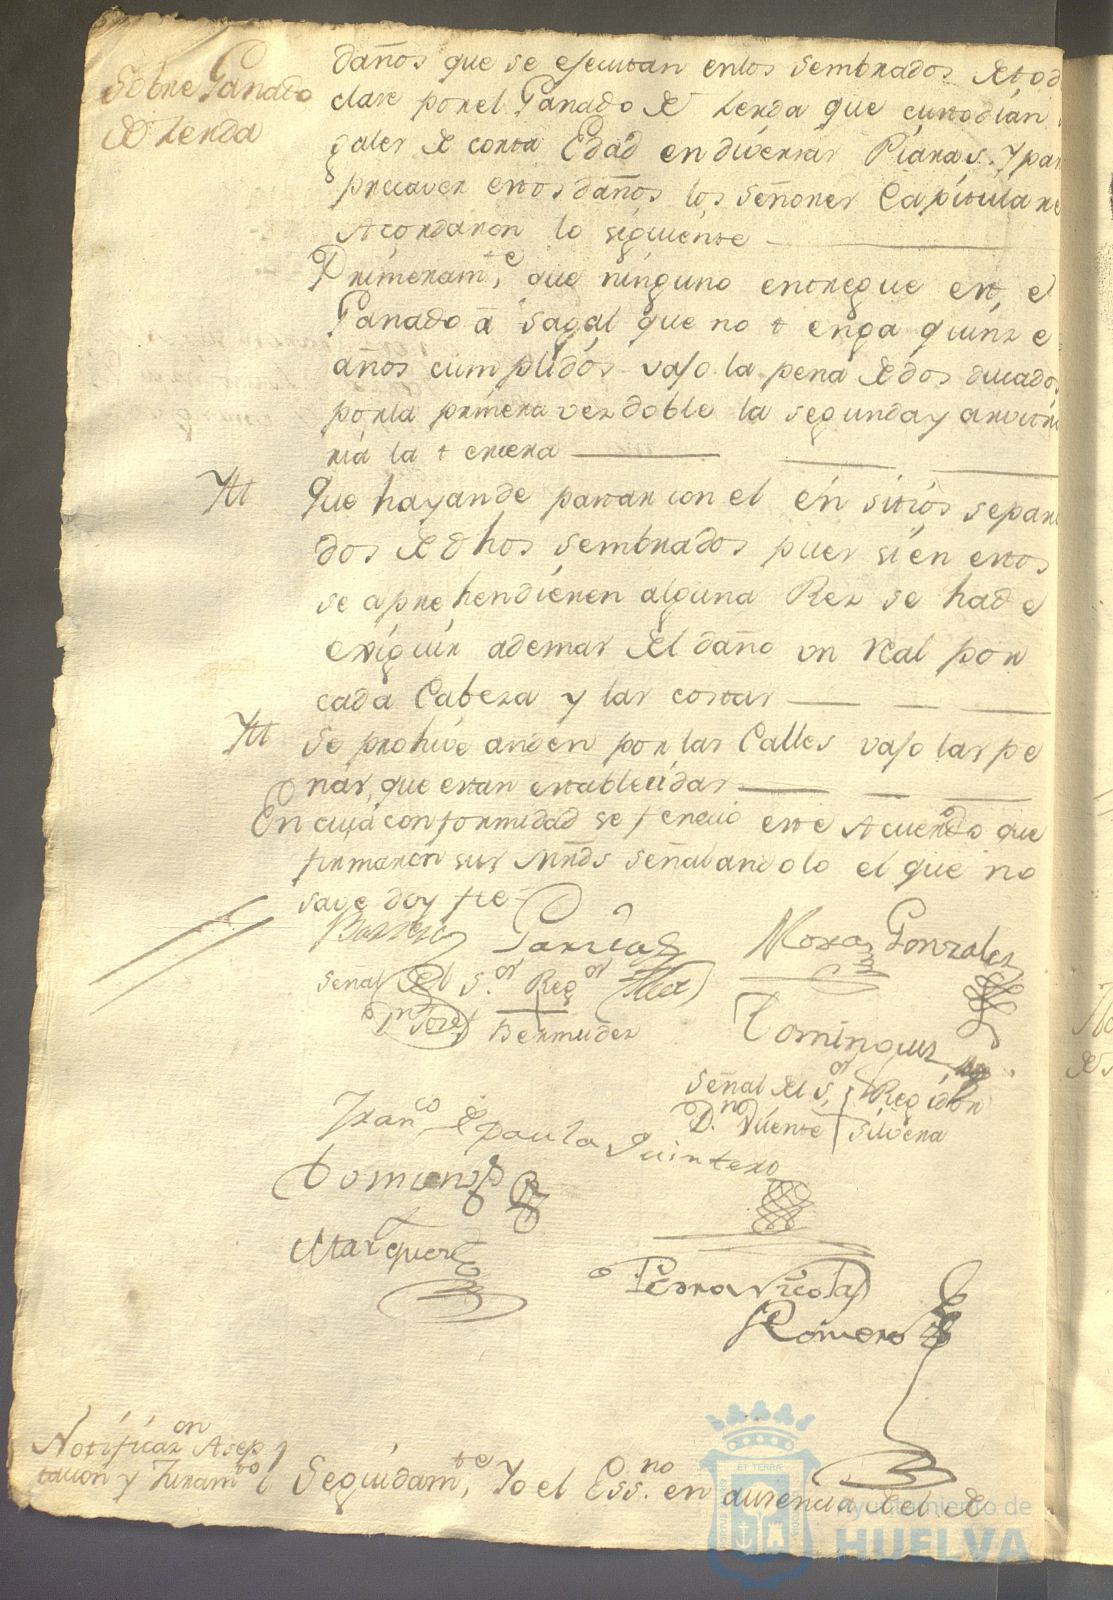 Sobre Ganado
de Zerda
daños que se ejecutan enlos sembrados de tod
clase por el Ganado de Zerda que custodian
gales de corta Edad en diversas Piaras. y par
precaver estos daños los señores Capitulare
Acordaron lo siguiente
Primeramte, que ninguno entregue est, e
Ganado â Sagal que no tenga quinze
años cumplidos vajo la pena de dos ducados
por la primera vez doble la segunda y arvitr
ria la tercera
Ytt Que hayan de pastar con el en sitios separa
dos de dhos sembrados pues si en estos
se aprehendieren alguna Rez se ha de
exiguir ademas del daño un Real por
cada Cabeza y las costas
Ytt Se prohive anden por las Calles vajo las pe
nas, que estan establecidas
En cuya conformidad se fenecio este Acuerdo que
firmaron sus Mrds señalandolo el que no
save doy fee
Barrero Garcia Mora Gonzalez
Señal del Sor Regor
Dn Jose Bermudez Dominguez
Señal del Sor Regidor
Dn Vicente Silvera
Franco de paula Quintero
Domingz
Marquez
Pedro Nicolas
Romero
Notificazon Asep
tacion y Juramto Seguidamte, Yo el Essno. en ausencia del de
ET TERRAE
PORTUS
CUSTODIA
Ayuntamiento de
HUELVA